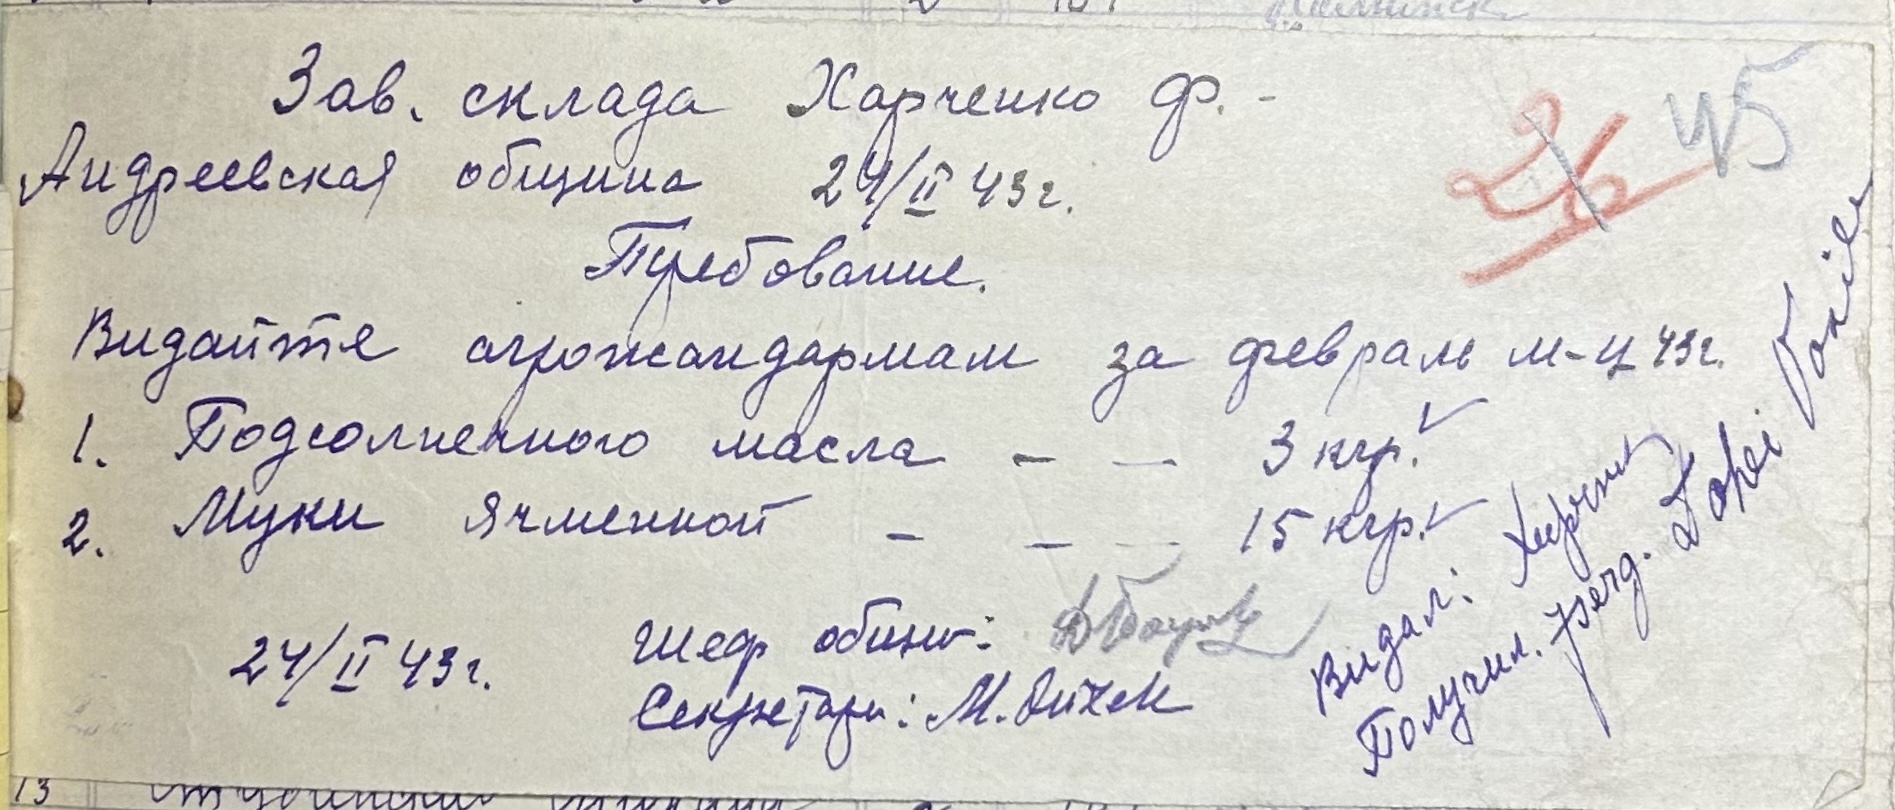 Зав. склада Харченко Ф. -
Андреевская община 24/II 43 г.
26 45
Требование.
Видайте агрожандармам за февраль м-ц 43 г.
1. Подсолнечного масла - - 3 кгр.
2. Муки ячменной - - - 15 кгр.
24/II 43 г. Шеф общин:
Секретарь: М.
Видал: Харченко
Получил.
13